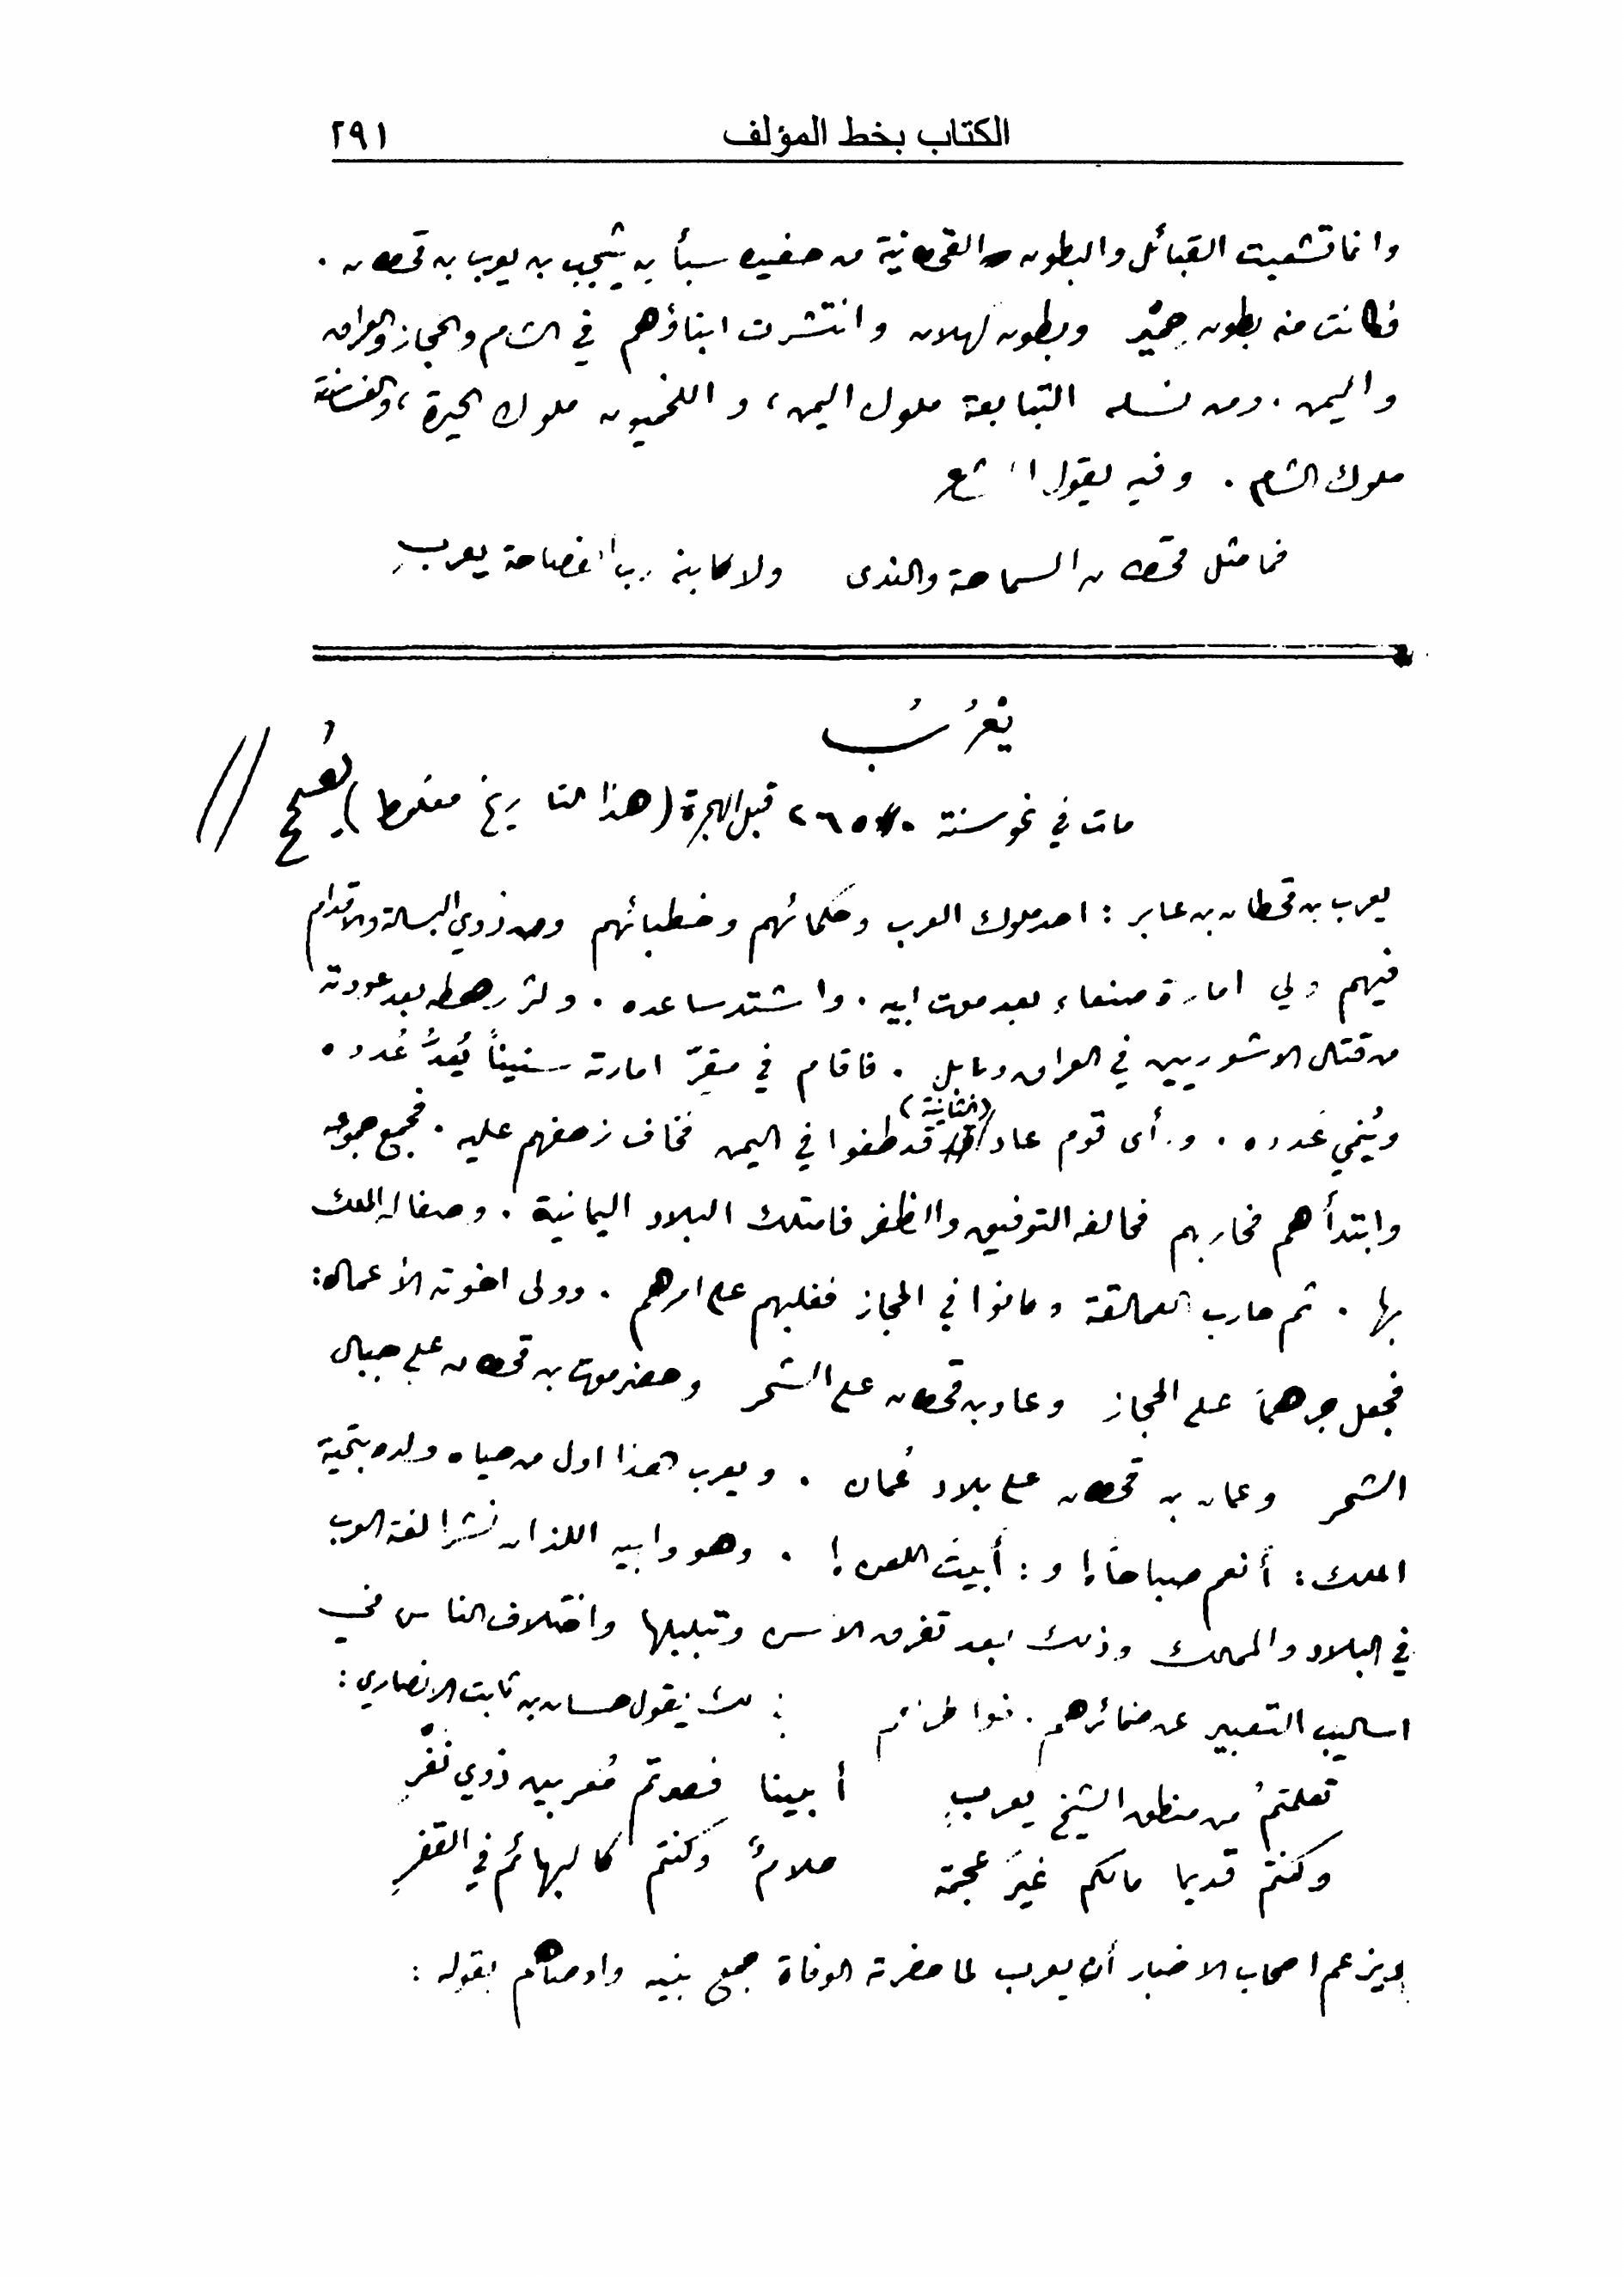 الكتاب بخط المؤلف ٢٩١
وانما تشعبت القبائل والبطون القحطانية من حفيده سبأ بن يشجب بن يعرب بن قحطان .
فكانت منه بطون حِمْيَر وبطون كهلان وانتشرت ابناؤهم في الشام والحجاز والعراق
واليمن . ومن نسله التبابعة ملوك اليمن ، واللخميون ملوك الحيرة ، والغساسنة
ملوك الشام . وفيه يقول الشاعر
فما مثل قحطان السماحة والندى ولا كابنه رب الفصاحة يعربِ
يَعْرُبُ
مات في نحو سنة ٢٦٥٠ قبل الهجرة (هذا التاريخ مغلوط) يُصحح //
يعرب بن قحطان بن عابر : احد ملوك العرب وحكمائهم وخطبائهم ومن ذوي البسالة والاقدام
فيهم ولي امارة صنعاء بعد موت ابيه . واشتد ساعده . وكثر رهطه بعد عودته
من قتال الاشوريين في العراق وبابل . فاقام في مقرّ امارته سنيناً يُعِدُّ عُدده
ويُنمي عَدده . ورأى قوم عاد (الثانية) قد طغوا في اليمن فخاف زحفهم عليه . فجمع جموعه
وابتدأهم فحاربهم فحالفه التوفيق والظفر فامتلك البلاد اليمانية . وصفا له الملك
بها . ثم حارب العمالقة وكانوا في الحجاز فغلبهم على امرهم . وولى اخوته الأعمال :
فجعل جرهماً على الحجاز وعاد بن قحطان على الشحر وحضرموت بن قحطان على جبال
الشحر وعمان بن قحطان على بلاد عُمان . ويعرب هذا اول من حياه ولده بتحية
الملك : أنعم صباحاً ! و : أبيتَ اللعن ! . وهو وابيه اللذان نشرا لغة العرب
في البلاد والممالك وذلك بعد تفرق الالسن وتبلبلها واختلاف الناس في
اساليب التعبير عن ضمائرهم . يقول حسان بن ثابت الانصاري :
تعلمتمُ من منطق الشيخ يعربِ أبينا فصرتم مُعربين ذوي نَفْرِ
وكنتم قديما مالكم غيرَ عجمة كلامٌ وكنتم كالبهائم في القفرِ
ويزعم اصحاب الاخبار أن يعرب لما حضرته الوفاة جمع بنيه واوصاهم بقوله :